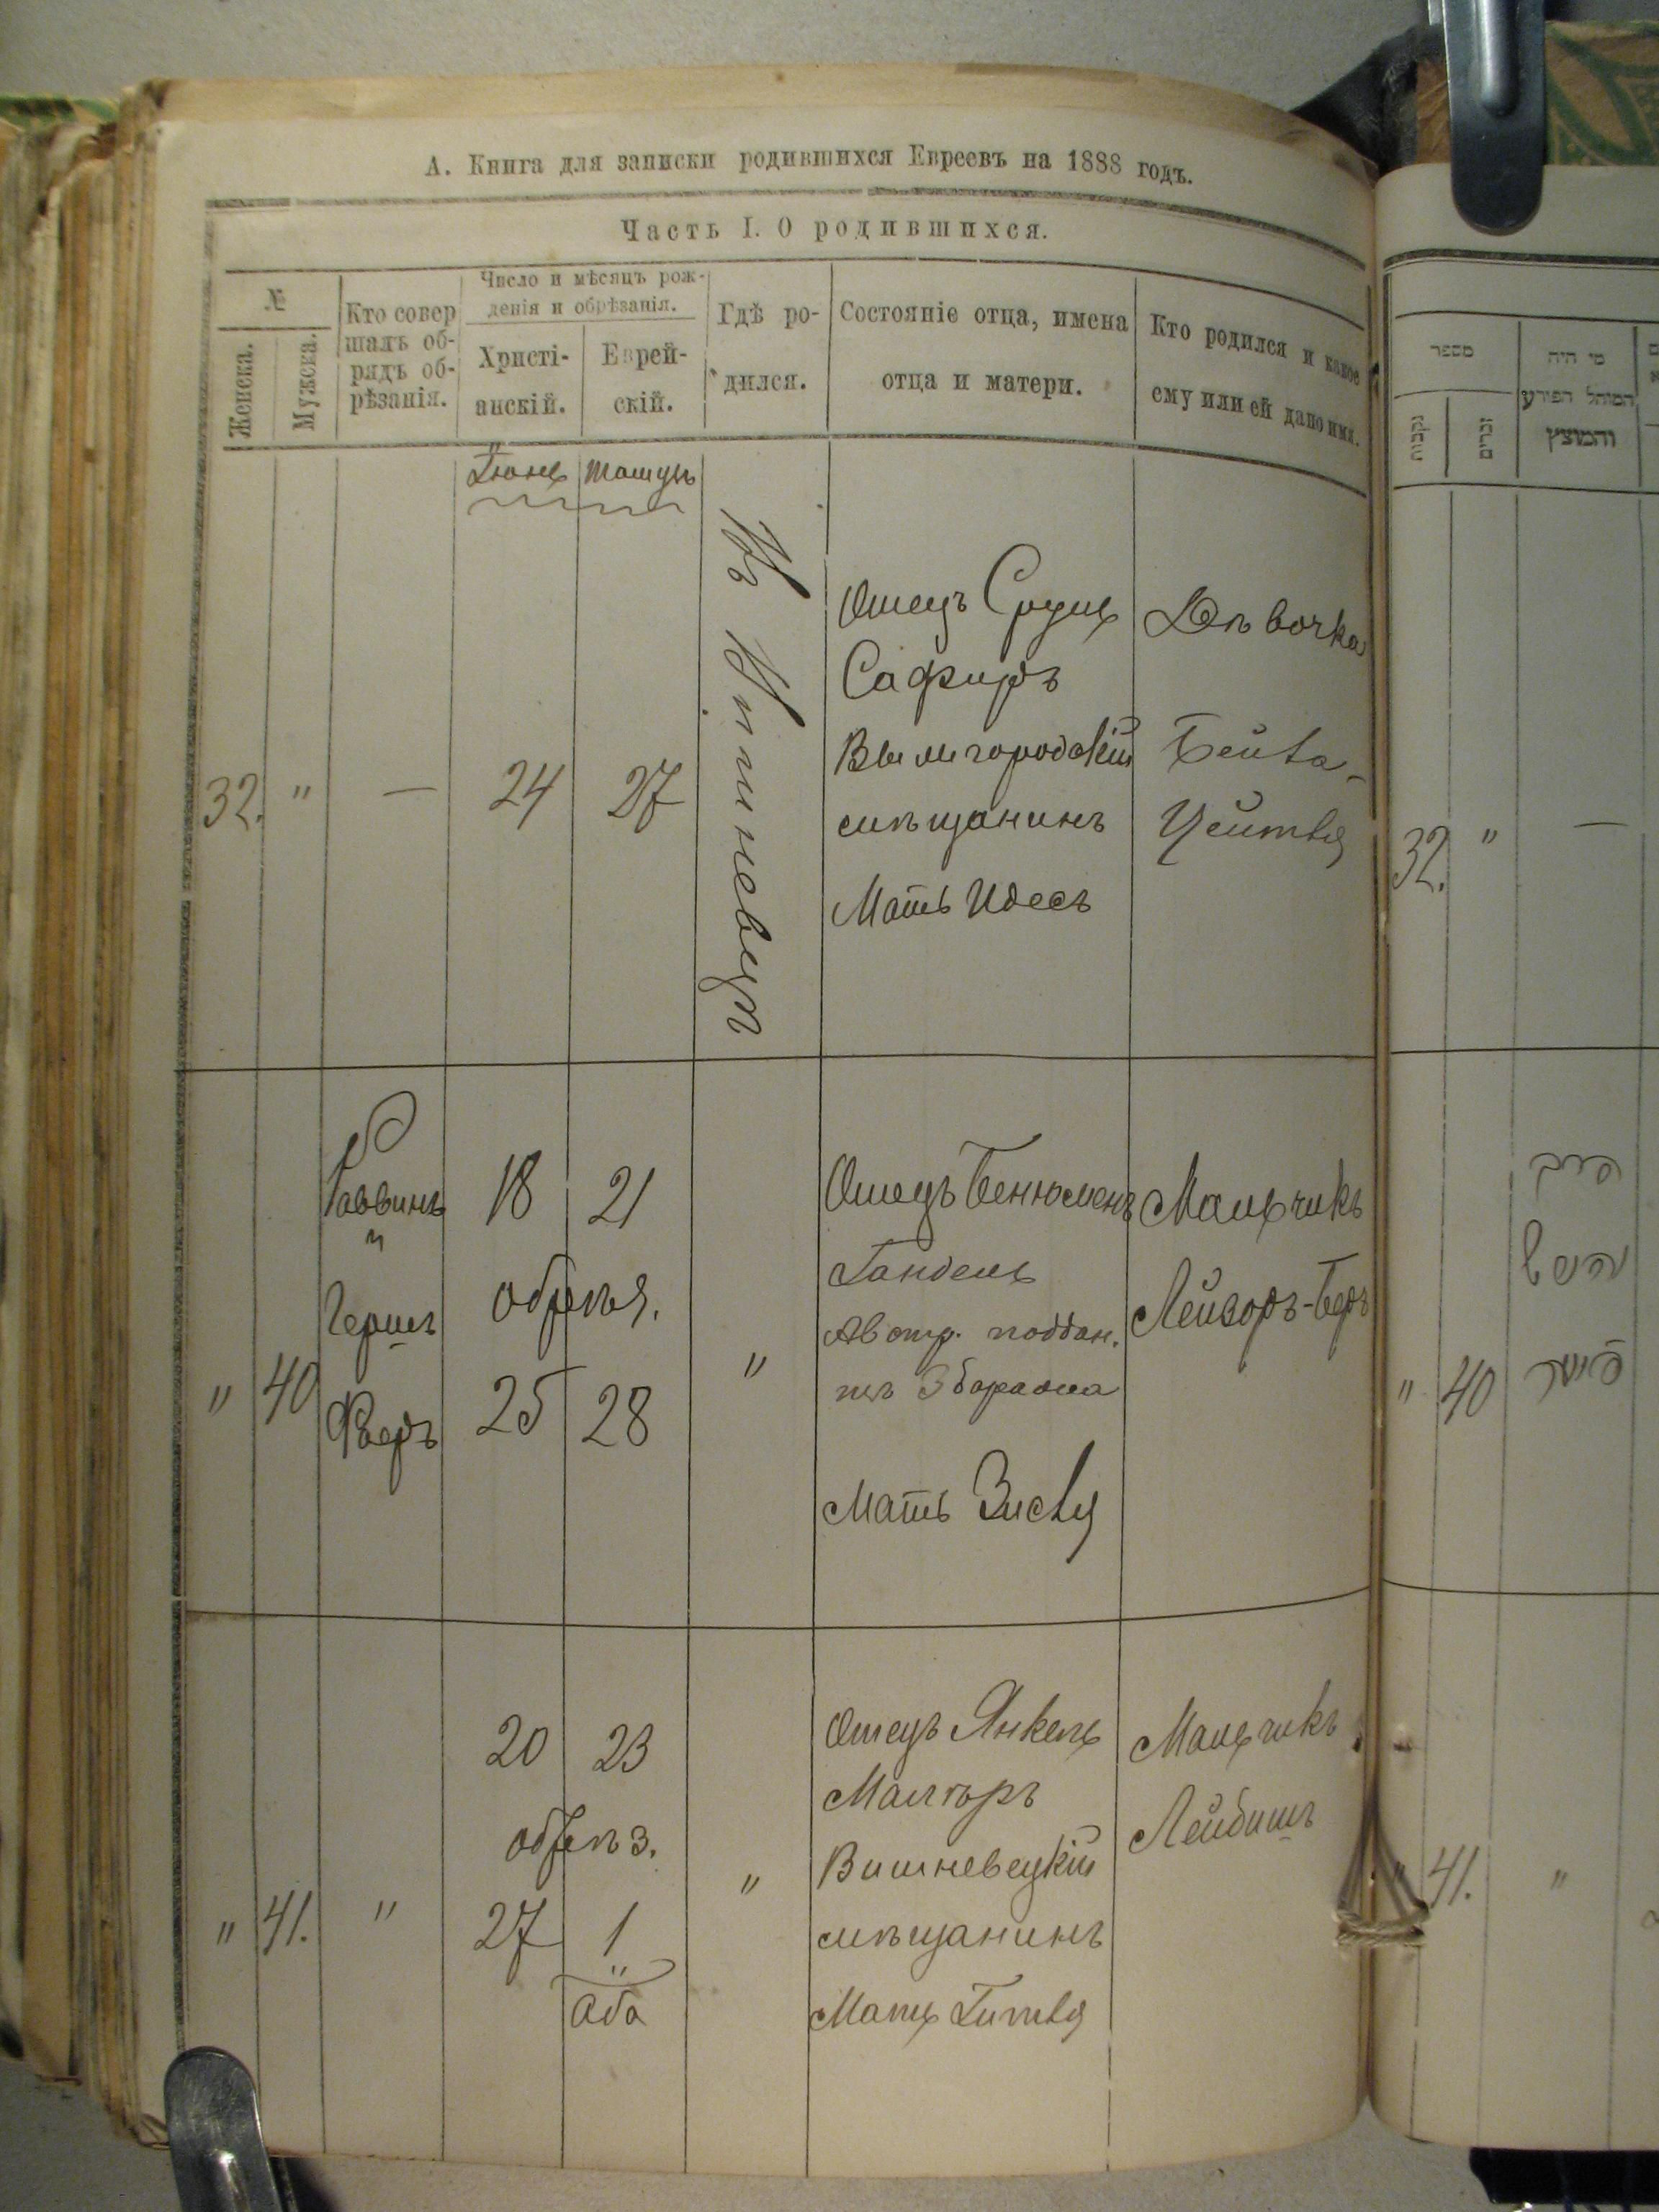 А. Книга для записки родившихся Евреевъ на 1888 годъ.
Часть I. О родившихся.
№
Женска.
Мужска.
Кто совер
шалъ об-
рядъ об-
рѣзанія.
Число и мѣсяцъ рож-
денія и обрѣзанія.
Христі-
анскій.
Еврей-
скій.
Гдѣ ро-
дился.
Состояніе отца, имена
отца и матери.
Кто родился и какое
ему или ей дано имя.
Іюнь
Тамузъ
32.
"
—
24
27
Въ
Отецъ Сруль
Сафиръ
мѣщанинъ
Мать Идесъ
Дѣвочка
Бейла-
Цейтля
"
40
Раввинъ
и
Гершъ
18
21
обрѣз.
25
28
"
Отецъ Бенюменъ
Гандель
Австр. поддан.
изъ Збаража
Мать Зисля
Мальчикъ
Лейзоръ-Беръ
"
41.
"
20
23
обрѣз.
27
1
"
Аба
"
Отецъ Янкель
Малтеръ
Вишневецкій
мѣщанинъ
Мать Гитля
Мальчикъ
Лейбишъ
מספר
נקבות
זכרים
מי היה
המוהל הפורע
והמוצץ
32.
"
—
"
40
הרב
הירש
41.
"